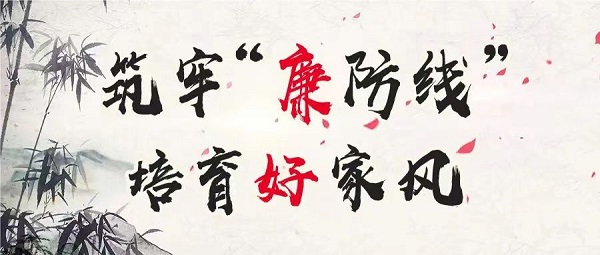 筑牢“廉防线”
培育好家风